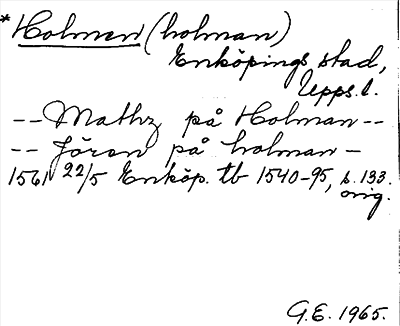 * Holmen (holman)
Enköpings stad,
Upps. l.
-- Mathz på Holman --
-- Jören på holman –
1561 22/5 Enköp. tb 1540-95, s. 133.
orig.
G.E. 1965.